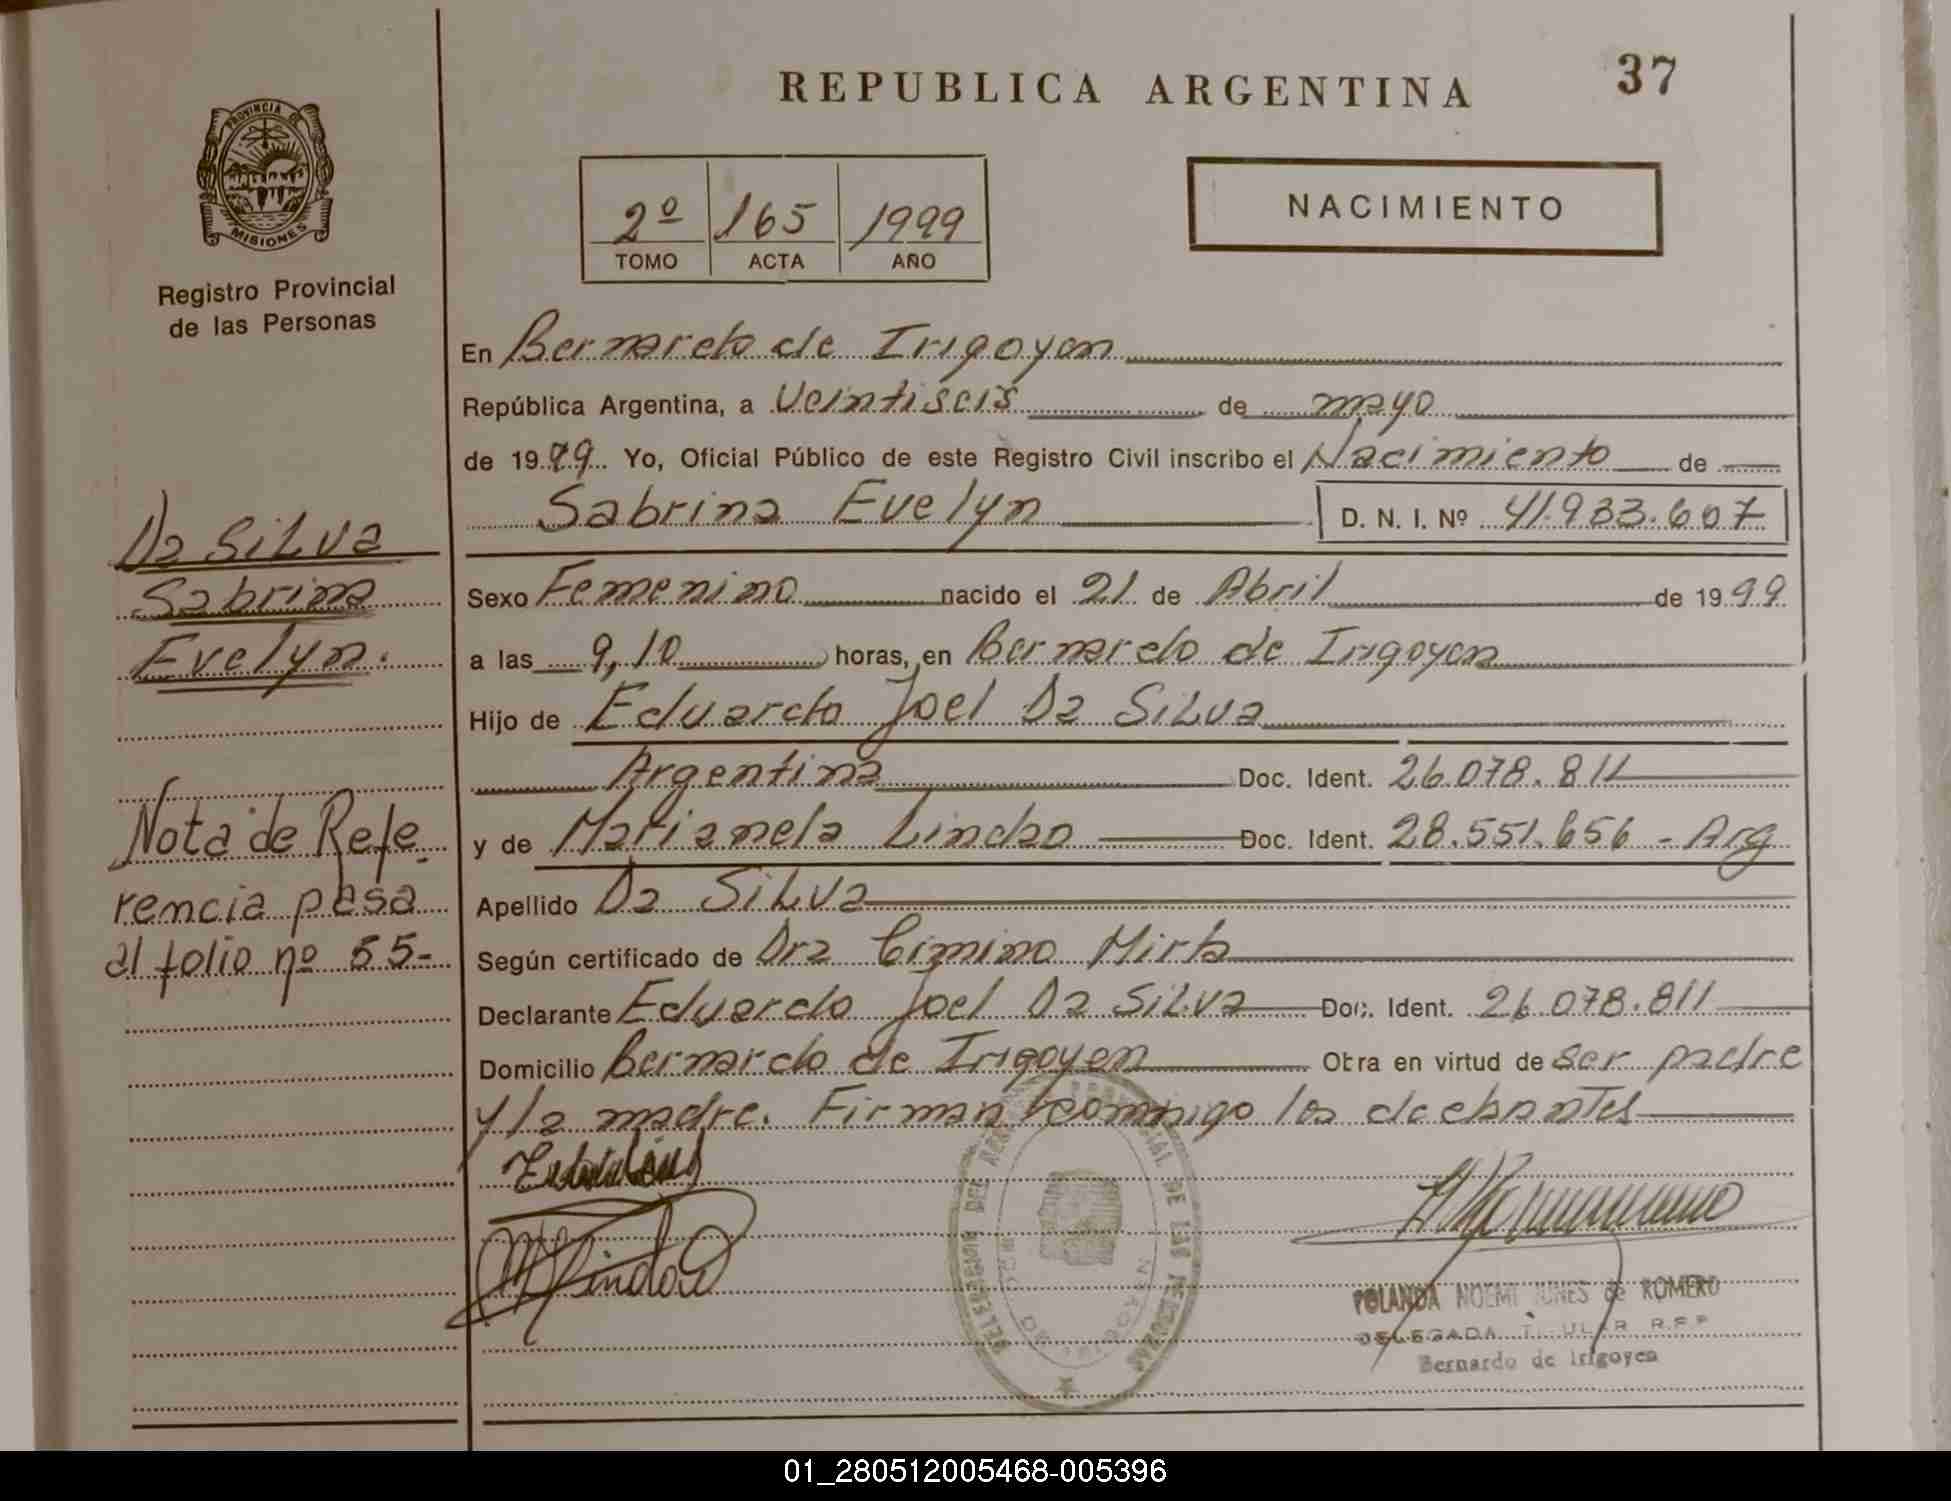 REPUBLICA ARGENTINA
37
PROVINCIA DE
MISIONES
Registro Provincial
de las Personas
2º 165 1999
TOMO ACTA AÑO
NACIMIENTO
En Bernardo de Irigoyen
República Argentina, a Veintiseis de mayo
de 1999 Yo, Oficial Público de este Registro Civil inscribo el Nacimiento de
Sabrina Evelyn D. N. I. Nº 41.933.607
Da SiLva
Sabrina
Evelyn.
Sexo Femenino nacido el 21 de Abril de 1999
a las 9,10 horas, en Bernardo de Irigoyen
Hijo de Eduardo Joel Da SiLva
Argentina Doc. Ident. 26.078.811
y de Marianela Lindao Doc. Ident. 28.551.656 - Arg
Apellido Da SiLva
Según certificado de Dra Cimino Mirta
Declarante Eduardo Joel Da SiLva Doc. Ident. 26.078.811
Domicilio Bernardo de Irigoyen Obra en virtud de ser padre
y la madre. Firman conmigo los declarantes
Nota de Refe-
rencia pasa
al folio nº 55-
DEL REGISTRO PROVINCIAL DE LAS PERSONAS
YOLANDA NOEMI de ROMERO
DELEGADA TITULAR R.P.P
Bernardo de Irigoyen
01_280512005468-005396